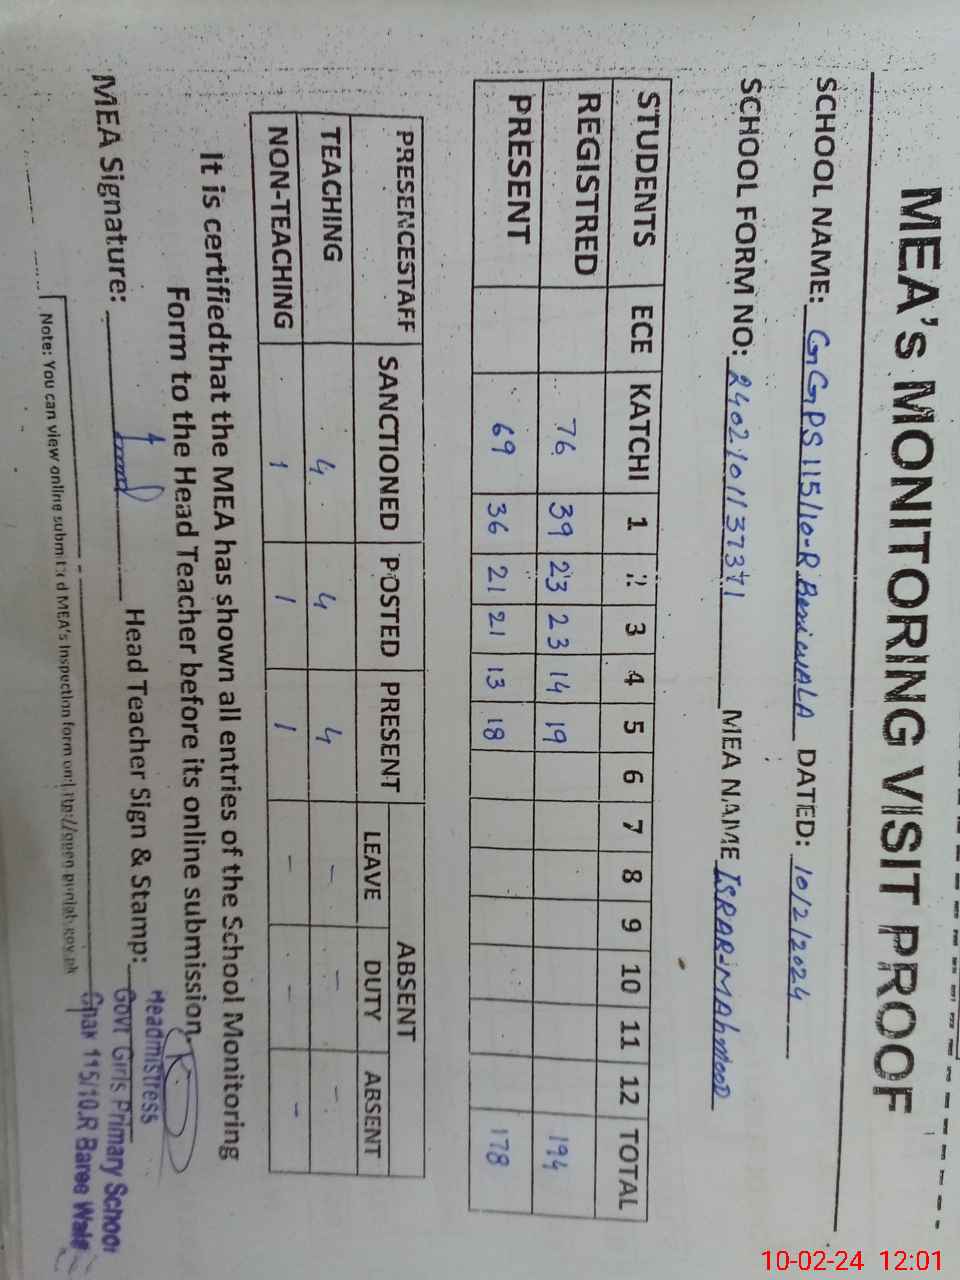 MEA's MONITORING VISIT PROOF
SCHOOL NAME: GGPS 115/10-R BeriWALA DATED: 10/2/2024
SCHOOL FORM NO: 2402101137371 MEA NAME ISRAR-MAhmOOD
STUDENTS ECE KATCHI 1 2 3 4 5 6 7 8 9 10 11 12 TOTAL
REGISTRED 76 39 23 23 14 19 194
PRESENT 69 36 21 21 13 18 178
PRESENCESTAFF SANCTIONED POSTED PRESENT ABSENT
LEAVE DUTY ABSENT
TEACHING 4 4 4 - - -
NON-TEACHING 1 1 1 - - -
It is certifiedthat the MEA has shown all entries of the School Monitoring
Form to the Head Teacher before its online submission.
MEA Signature: Head Teacher Sign & Stamp:
Headmistress
Govt Girls Primary School
Chak 115/10.R Baree Wala
Note: You can view online submitted MEA's Inspection form on http://open.punjab.gov.pk
10-02-24 12:01